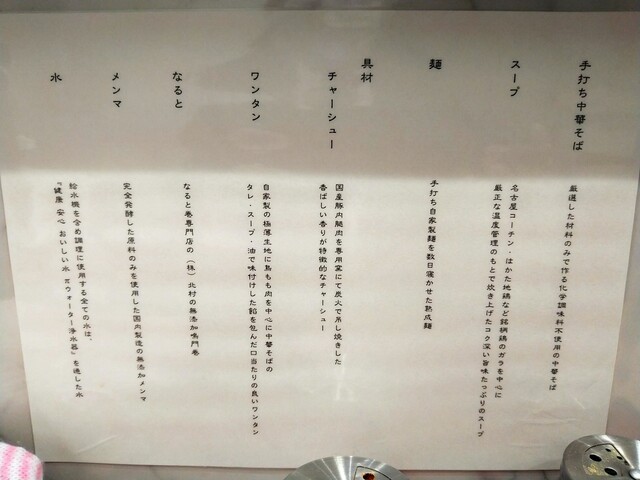 手打ち中華そば
厳選した材料のみで作る化学調味料不使用の中華そば
スープ
名古屋コーチン・はかた地鶏など銘柄鶏のガラを中心に
厳正な温度管理のもとで炊き上げたコク深い旨味たっぷりのスープ
麺
手打ち自家製麺を数日寝かせた熟成麺
具材
チャーシュー
国産豚内腿肉を専用窯にて炭火で吊し焼きした
香ばしい香りが特徴的なチャーシュー
ワンタン
自家製の極薄生地に鳥もも肉を中心に中華そばの
タレ・スープ・油で味付けした餡を包んだ口当たりの良いワンタン
なると
なると巻専門店の（株）北村の無添加鳴門巻
メンマ
完全発酵した原料のみを使用した国内製造の無添加メンマ
水
給水機を含め調理に使用する全ての水は、
『健康 安心 おいしい水 πウォーター浄水器』を通した水